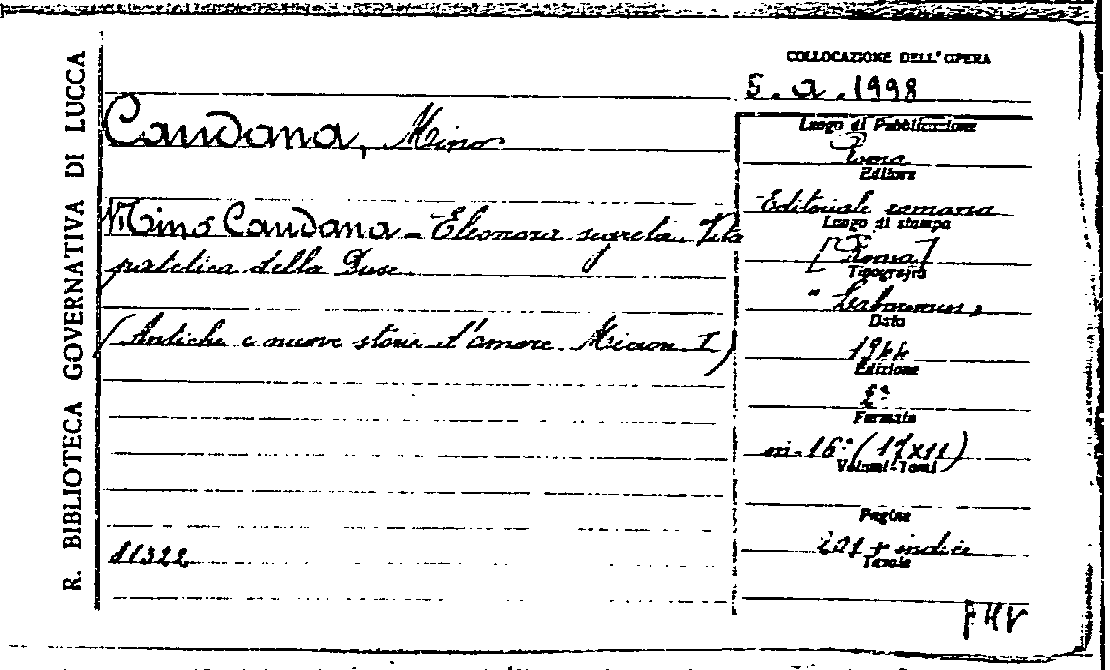 R. BIBLIOTECA GOVERNATIVA DI LUCCA
COLLOCAZIONE DELL'OPERA
5.a.1998
Caudana, Mino
Mino Caudana - Eleonora segreta. Vita
patetica della Duse
(Antiche e nuove storie d'amore. I)
11322
Luogo di Pubblicazione
Roma
Editore
Editoriale romana
Luogo di stampa
[Roma]
Tipografia
Data
1944
Edizione
Formato
in-16° (17x11)
Volumi-Tomi
Pagine
+ indice
Tavole